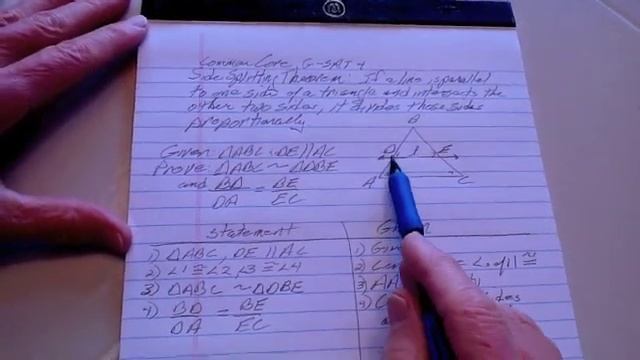 Common Core G-SRT 4
Side Splitting Theorem: If a line is parallel
to one side of a triangle and intersects the
other two sides, it divides those sides
proportionally
B
Given △ABC, DE || AC
D E
Prove △ABC ~ △DBE
A C
and BD/DA = BE/EC
statement
1) △ABC, DE || AC
2) ∠1 ≅ ∠2, ∠3 ≅ ∠4
3) △ABC ~ △DBE
4) BD/DA = BE/EC
1)
2) ∠s of || ≅
3) AA
4)